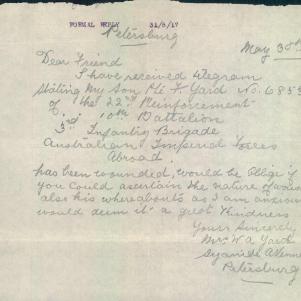 FORMAL REPLY 31/5/17
Petersburg
May 30th
Dear Friend
I have received telegram
stating My Son Pte F Yard No. 6853
of the 22nd Reinforcement
10th Battalion
3rd Infantry Brigade
Australian Imperial Forces
Abroad.
has been wounded, would be Oblige if
you could ascertain the nature of wounds
also his whereabouts as I am anxious
would deem it a great Kindness
Yours Sincerely
Mrs W A Yard
Avenue
Petersburg